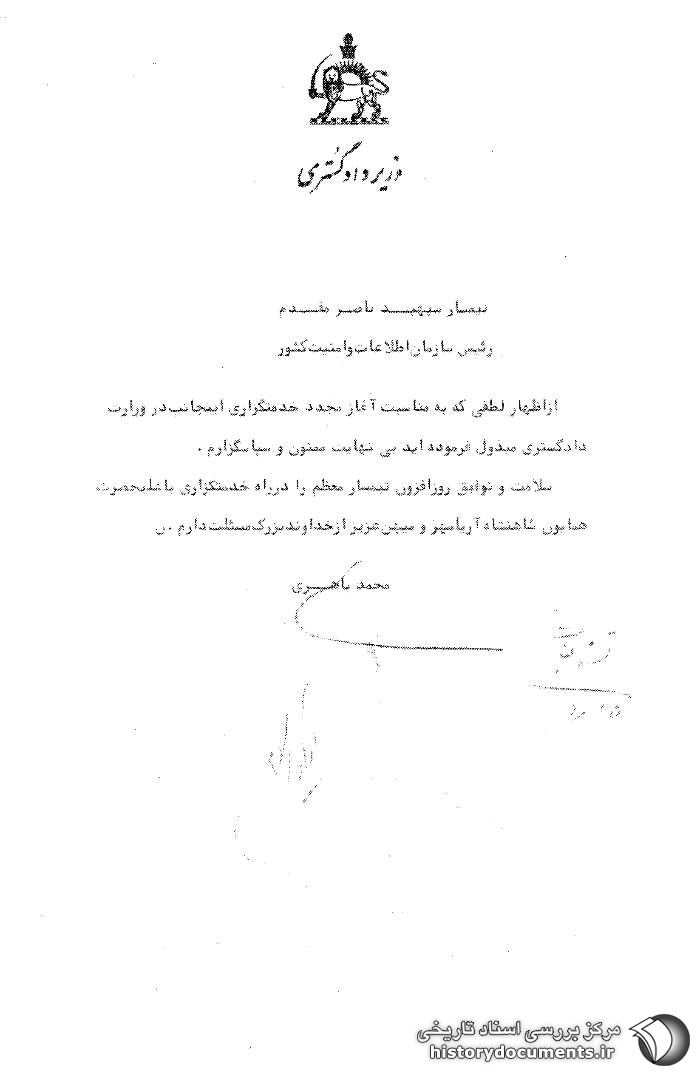 وزیر دادگستری
تیمسار سپهبد ناصر مقدم
رئیس سازمان اطلاعات وامنیت کشور
ازاظهار لطفی که به مناسبت آغاز مجدد خدمتگزاری اینجانب در وزارت
دادگستری مبذول فرموده اید بی نهایت ممنون و سپاسگزارم .
سلامت و توفیق روزافزون تیمسار معظم را درراه خدمتگزاری باعلیحضرت
همایون شاهنشاه آریامهر و میهن عزیز ازخداوند بزرگ مسئلت دارم .ن
محمد باهری
مرکز بررسی اسناد تاریخی
historydocuments.ir